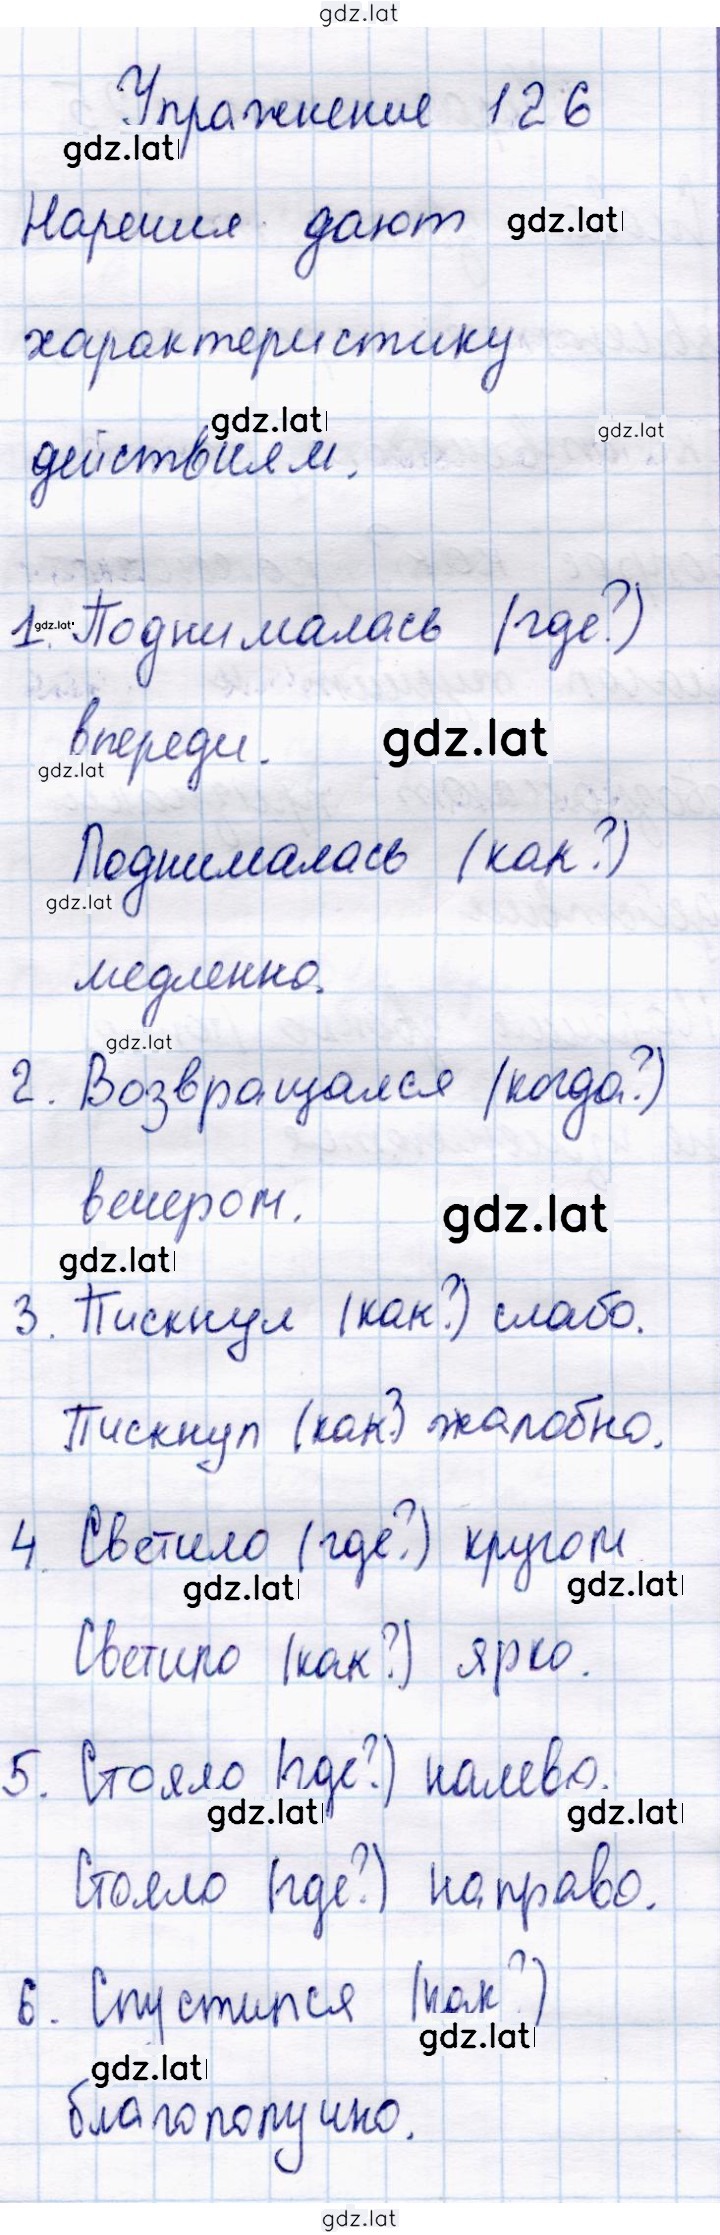 gdz.lat
Упражнение 126
gdz.lat
Наречия дают gdz.lat
характеристику
gdz.lat gdz.lat
действиям.
1. gdz.lat Поднималась (где?)
впереди. gdz.lat
gdz.lat
Поднималась (как?)
gdz.lat
медленно.
gdz.lat
2. Возвращался (когда?)
вечером. gdz.lat
gdz.lat
3. Пискнул (как?) слабо.
Пискнул (как?) жалобно.
4. Светило (где?) кругом
gdz.lat gdz.lat
Светило (как?) ярко.
5. Стояло (где?) налево.
gdz.lat gdz.lat
Стояло (где?) направо.
6. Спустился (как?)
gdz.lat
gdz.lat
благополучно.
gdz.lat